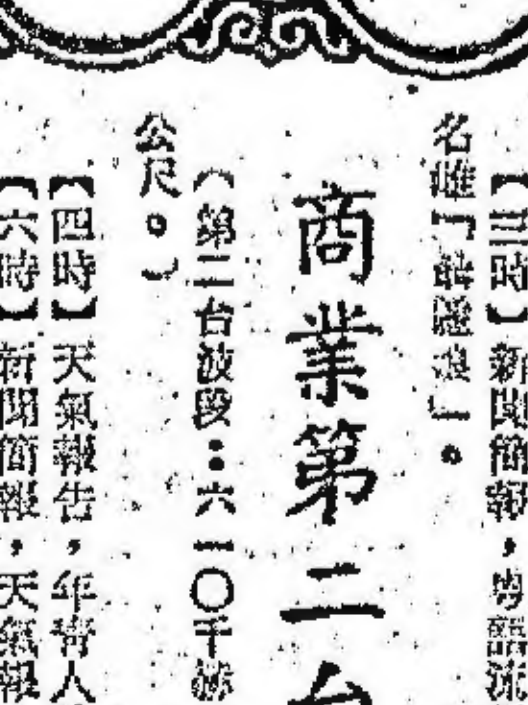 【三時】新聞簡報，粵語流
名雌「
」。
商業第二台
（第二台波段：六一〇千赫
公尺。）
【四時】天氣報告，年青人
【六時】新聞簡報，天氣報